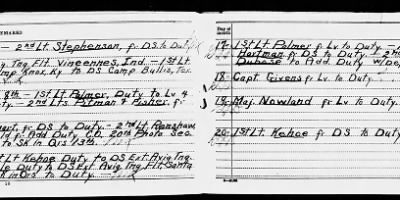 REMARKS
- 2nd Lt. Stephenson, fr DS to Duty
Tng Flt. Vincennes, Ind. - 1st Lt
Knox, Ky to DS Camp Bullis, Tex.
8th - 1st Lt Palmer, Duty to Lv 4
Duty - 2nd Lts Pitman & Fisher, fr
fr DS to Duty. - 2nd Lt Ranshaw
fr Add Duty C.O. 20th Photo Sec
to Sk in Qrs 13th.
Lt Kehoe Duty to DS Ext. Avig Tng.
Duty to DS Ext. Avig Tng. Flt. Santa
Sk in Qrs to Duty.
Day of
17 1st Lt Palmer fr Lv to Duty. -
Hartman fr DS to Duty. - 2nd
Dubose to Add Duty w/
18 Capt. Givens fr Lv to Duty.
19 Maj. Nowland fr Lv to Duty.
20 1st Lt. Kehoe fr DS to Duty